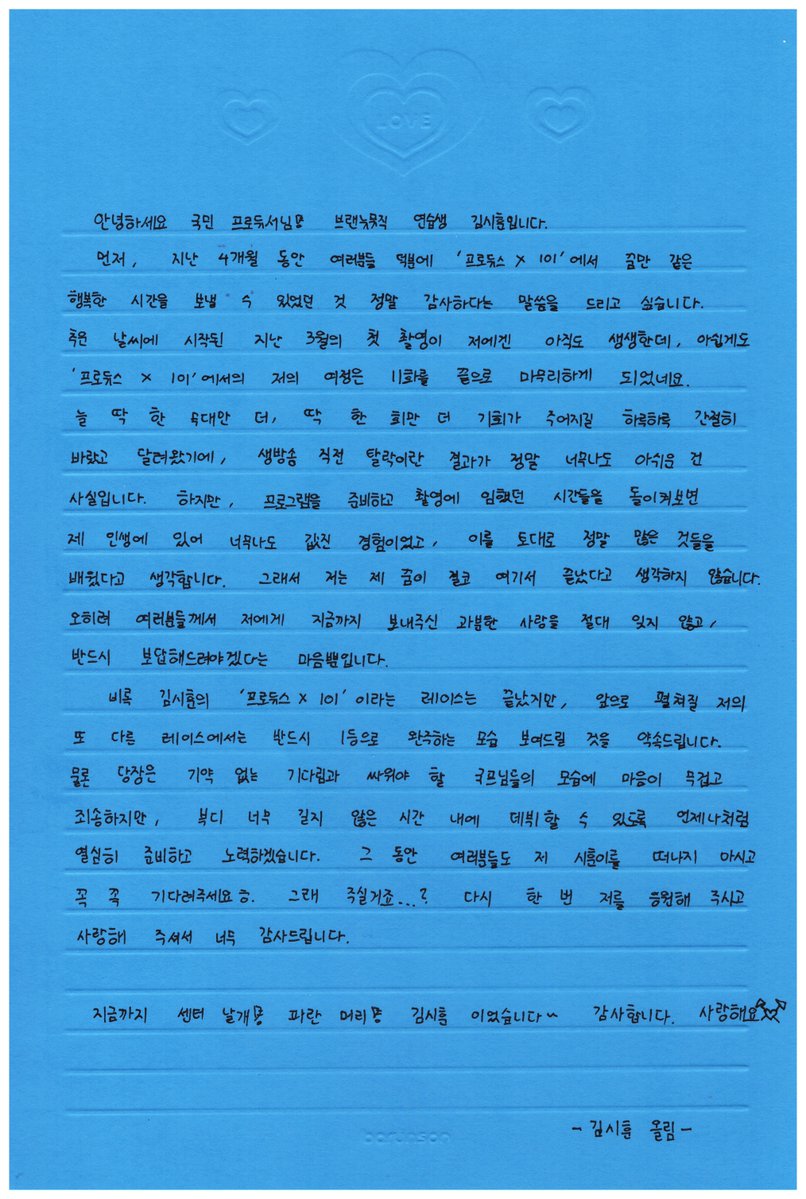 LOVE
안녕하세요 국민 프로듀서님! 브랜뉴뮤직 연습생 김시훈입니다.
먼저, 지난 4개월 동안 여러분들 덕분에 '프로듀스 X 101'에서 꿈만 같은
행복한 시간을 보낼 수 있었던 것 정말 감사하다는 말씀을 드리고 싶습니다.
추운 날씨에 시작된 지난 3월의 첫 촬영이 저에겐 아직도 생생한데, 아쉽게도
'프로듀스 X 101'에서의 저의 여정은 11화를 끝으로 마무리하게 되었네요.
늘 딱 한 무대만 더, 딱 한 회만 더 기회가 주어지길 하루하루 간절히
바랐고 달려왔기에, 생방송 직전 탈락이란 결과가 정말 너무나도 아쉬운 건
사실입니다. 하지만, 프로그램을 준비하고 촬영에 임했던 시간들을 돌이켜보면
제 인생에 있어 너무나도 값진 경험이었고, 이를 토대로 정말 많은 것들을
배웠다고 생각합니다. 그래서 저는 제 꿈이 결코 여기서 끝났다고 생각하지 않습니다.
오히려 여러분들께서 저에게 지금까지 보내주신 과분한 사랑을 절대 잊지 않고,
반드시 보답해드려야겠다는 마음뿐입니다.
비록 김시훈의 '프로듀스 X 101'이라는 레이스는 끝났지만, 앞으로 펼쳐질 저의
또 다른 레이스에서는 반드시 1등으로 완주하는 모습 보여드릴 것을 약속드립니다.
물론 당장은 기약 없는 기다림과 싸워야 할 국프님들의 모습에 마음이 무겁고
죄송하지만, 부디 너무 길지 않은 시간 내에 데뷔할 수 있도록 언제나처럼
열심히 준비하고 노력하겠습니다. 그 동안 여러분들도 저 시훈이를 떠나지 마시고
꼭 꼭 기다려주세요ㅎ. 그래 주실거죠...? 다시 한 번 저를 응원해 주시고
사랑해 주셔서 너무 감사드립니다.
지금까지 센터 날개! 파란 머리! 김시훈 이었습니다~ 감사합니다. 사랑해요
barunson
- 김시훈 올림 -